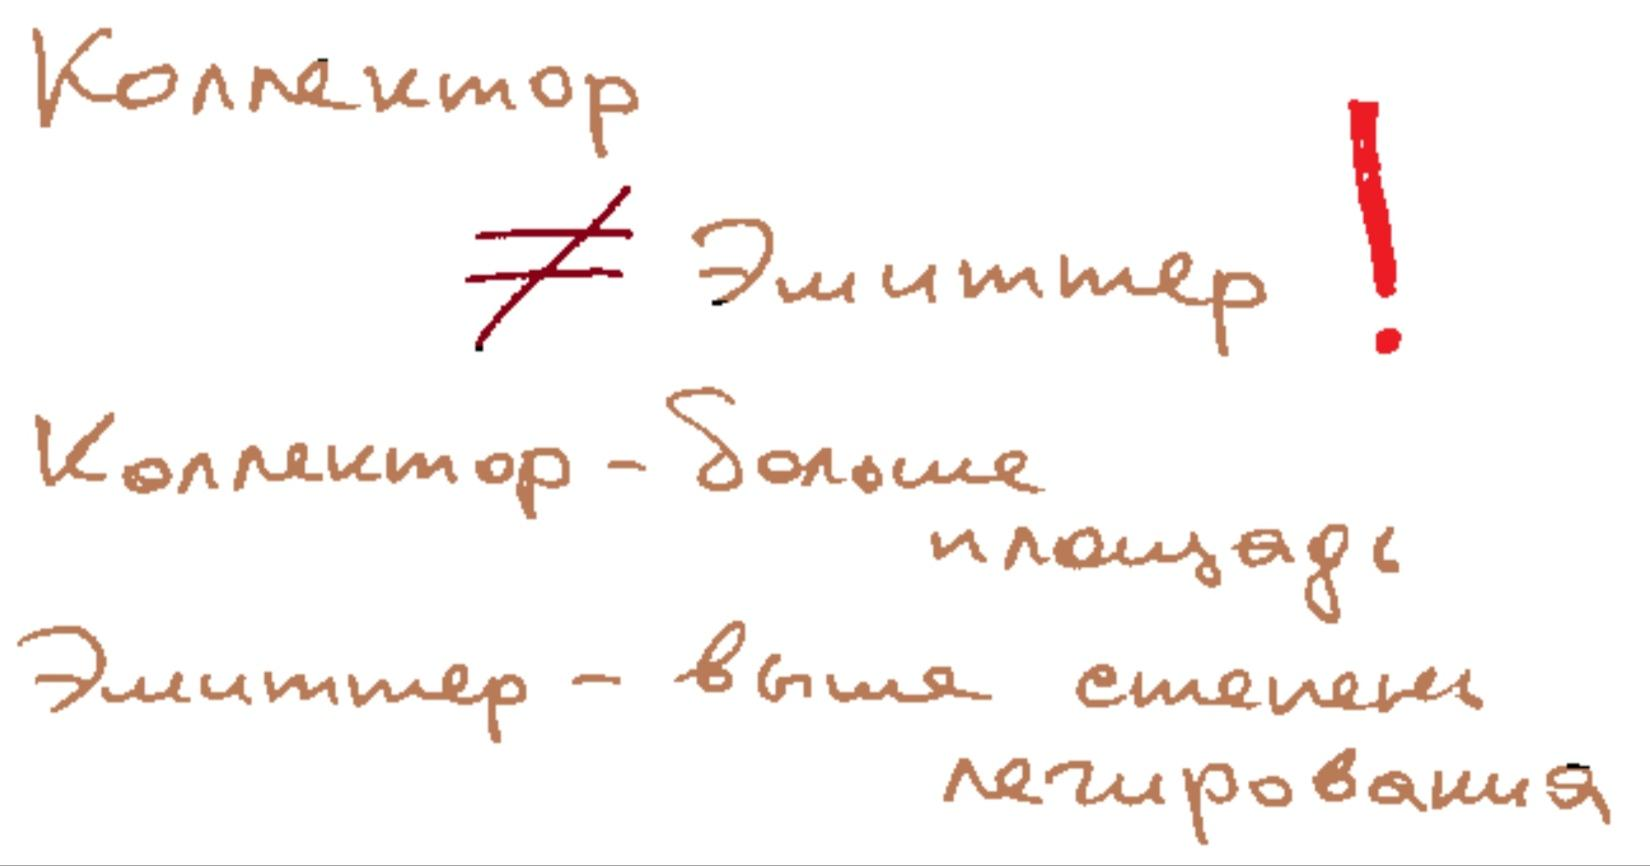 Коллектор
≠ Эмиттер !
Коллектор - больше
площадь
Эмиттер - выше степень
легирования